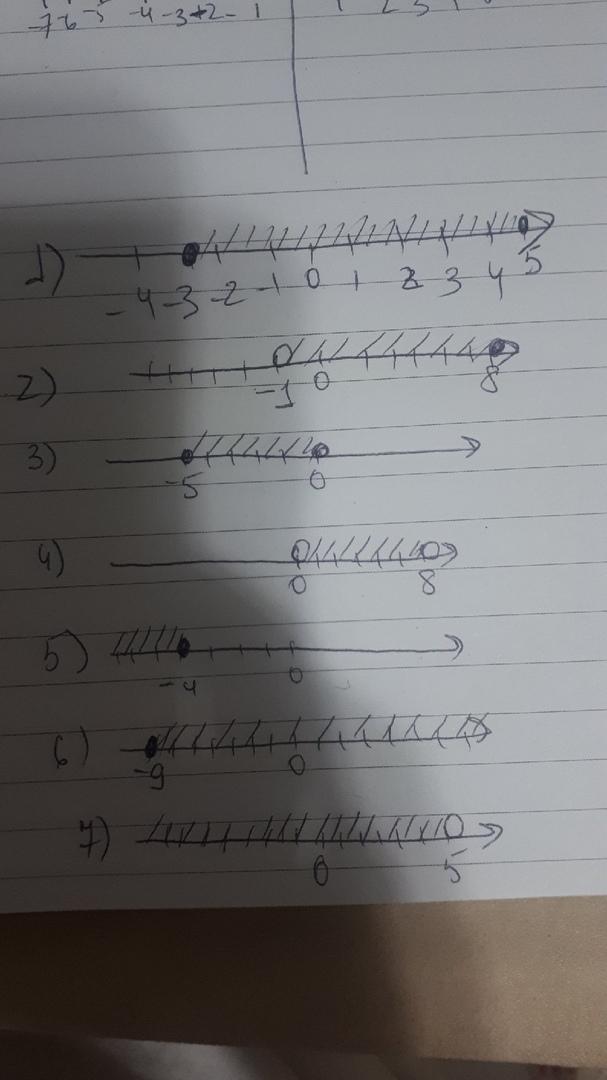 -7 -6 -5 -4 -3 -2 -1
1)
-4 -3 -2 -1 0 1 2 3 4 5
2)
-1 0 8
3)
-5 0
4)
0 8
5)
-4 0
6)
-9 0
7)
0 5